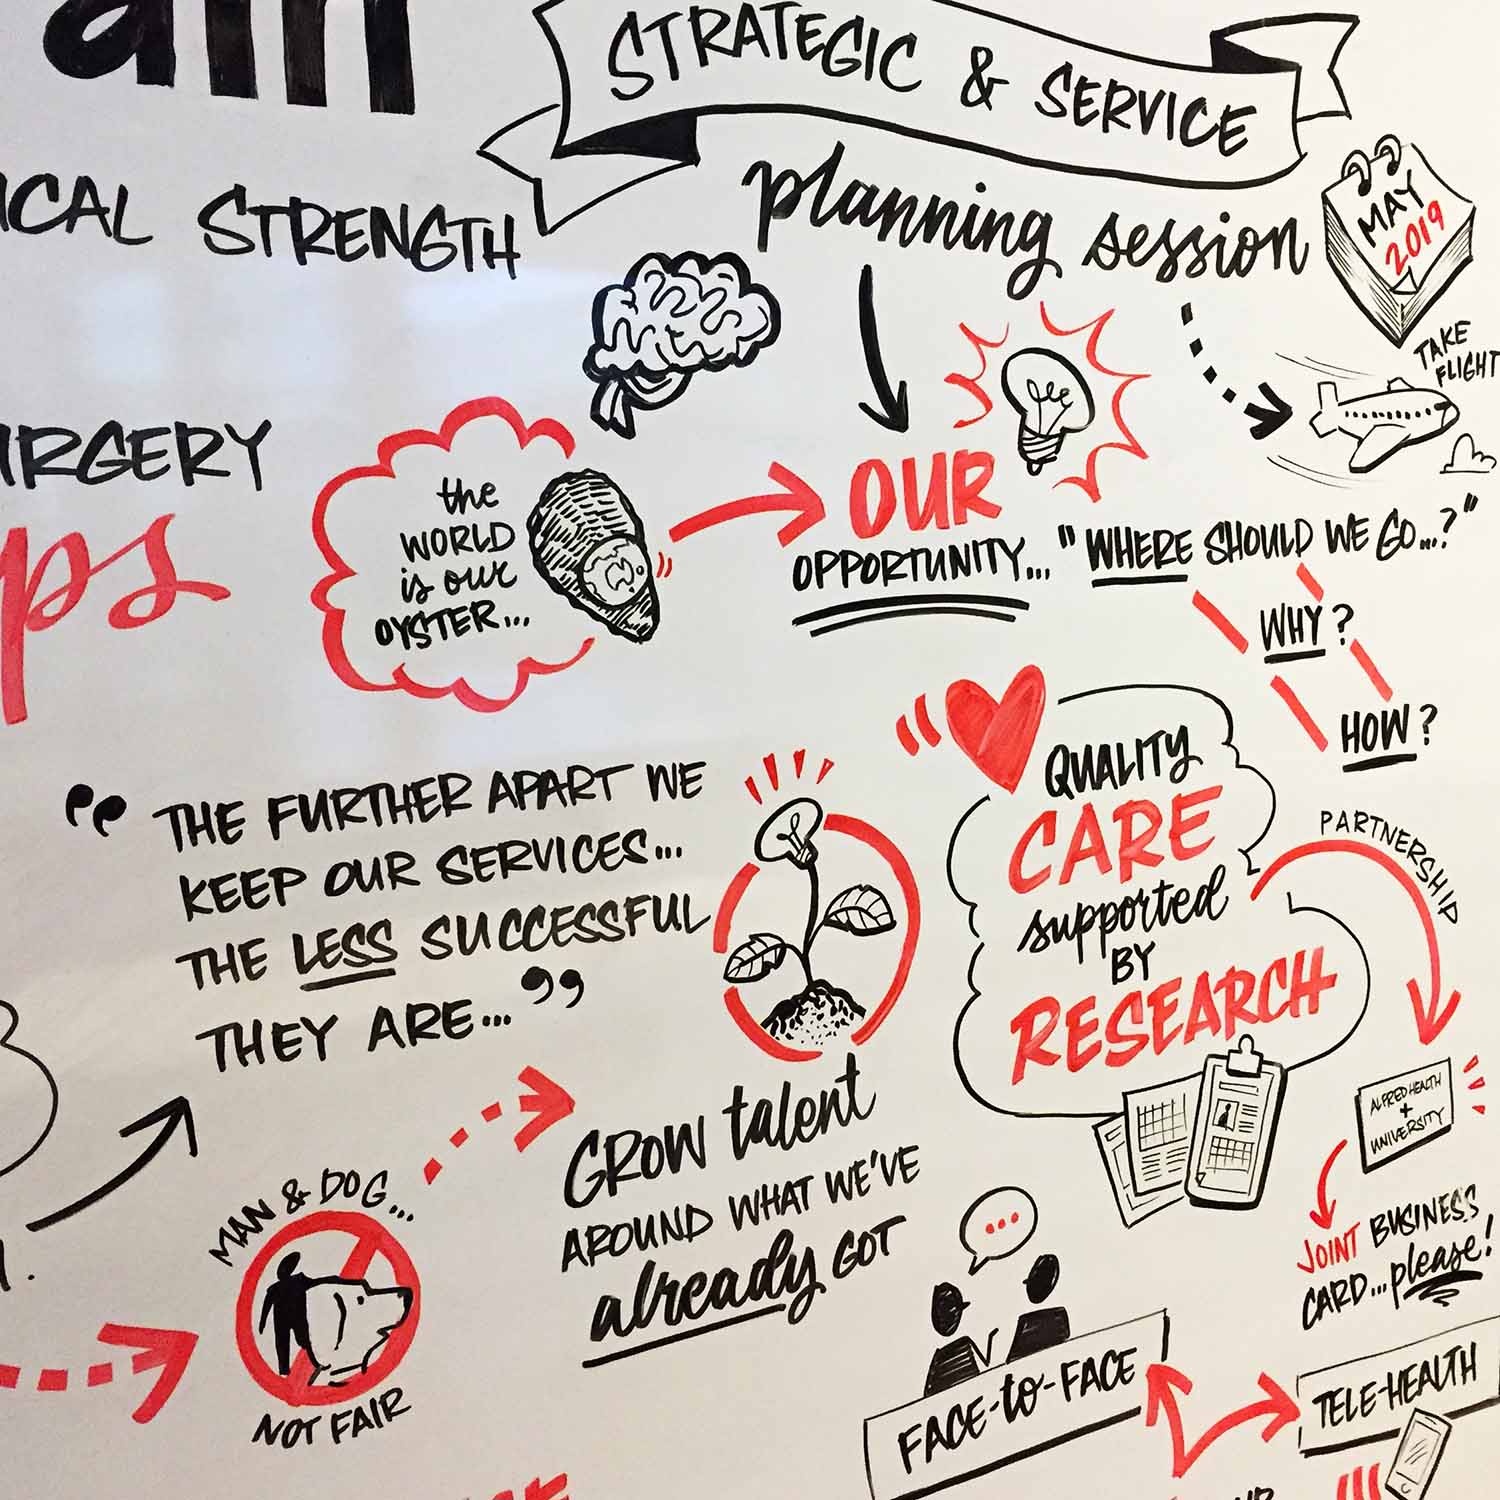 STRATEGIC & SERVICE
planning session
MAY
2019
STRENGTH
TAKE
FLIGHT
the
WORLD
is our
OYSTER...
OUR
OPPORTUNITY...
"WHERE SHOULD WE GO...?"
WHY?
HOW?
"THE FURTHER APART WE
KEEP OUR SERVICES...
THE LESS SUCCESSFUL
THEY ARE..."
QUALITY
CARE
supported
BY
RESEARCH
PARTNERSHIP
ALFRED HEALTH
+
UNIVERSITY
JOINT BUSINESS
CARD...please!
GROW talent
AROUND WHAT WE'VE
already GOT
MAN & DOG...
NOT FAIR
FACE-to-FACE
TELE-HEALTH